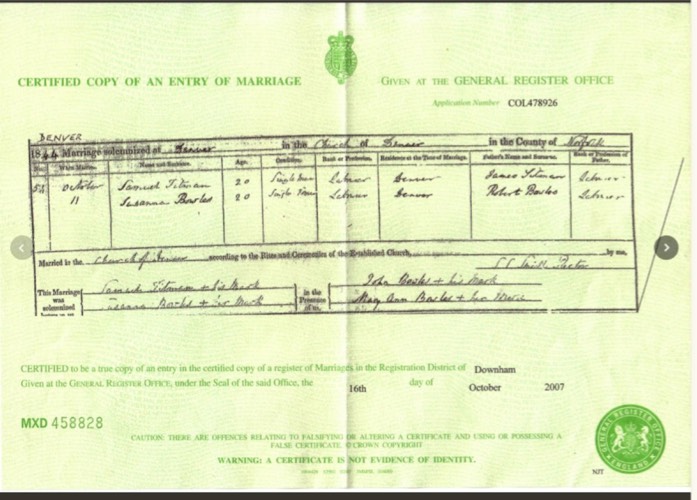 CERTIFIED COPY OF AN ENTRY OF MARRIAGE
GIVEN AT THE GENERAL REGISTER OFFICE
Application Number COL478926
DENVER
1844 Marriage solemnized at Denver in the Church of Denver in the County of Norfolk
No. When Married. Name and Surname. Age. Condition. Rank or Profession. Residence at the Time of Marriage. Father's Name and Surname. Rank or Profession of Father.
October Samuel Titman 20 Single Man Labourer Denver James Titman Labourer
11 Susanna Bowles 20 Single Denver Robert Bowles
Married in the Church of Denver according to the Rites and Ceremonies of the Established Church, by me,
This Marriage was solemnized
Samuel Titmson + his Mark
Bowles + her Mark
in the Presence of us,
John Bowles + his Mark
Mary Ann Bowles + her Mark
CERTIFIED to be a true copy of an entry in the certified copy of a register of Marriages in the Registration District of Downham
Given at the GENERAL REGISTER OFFICE, under the Seal of the said Office, the 16th day of October 2007
MXD 458828
CAUTION: THERE ARE OFFENCES RELATING TO FALSIFYING OR ALTERING A CERTIFICATE AND USING OR POSSESSING A
FALSE CERTIFICATE. © CROWN COPYRIGHT
WARNING: A CERTIFICATE IS NOT EVIDENCE OF IDENTITY.
GENERAL REGISTER OFFICE
ENGLAND
NJT